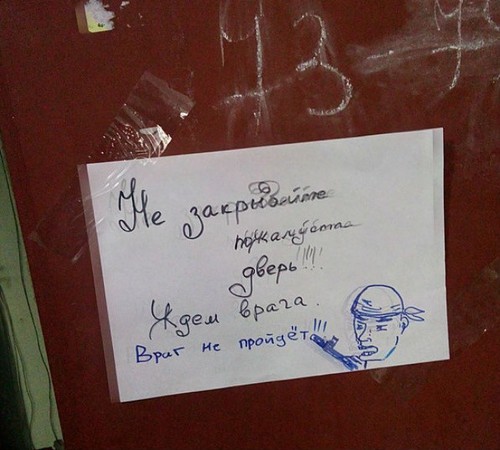 43
Не закрывайте
пожалуйста
дверь!!!
Ждем врача.
Враг не пройдёт!!!